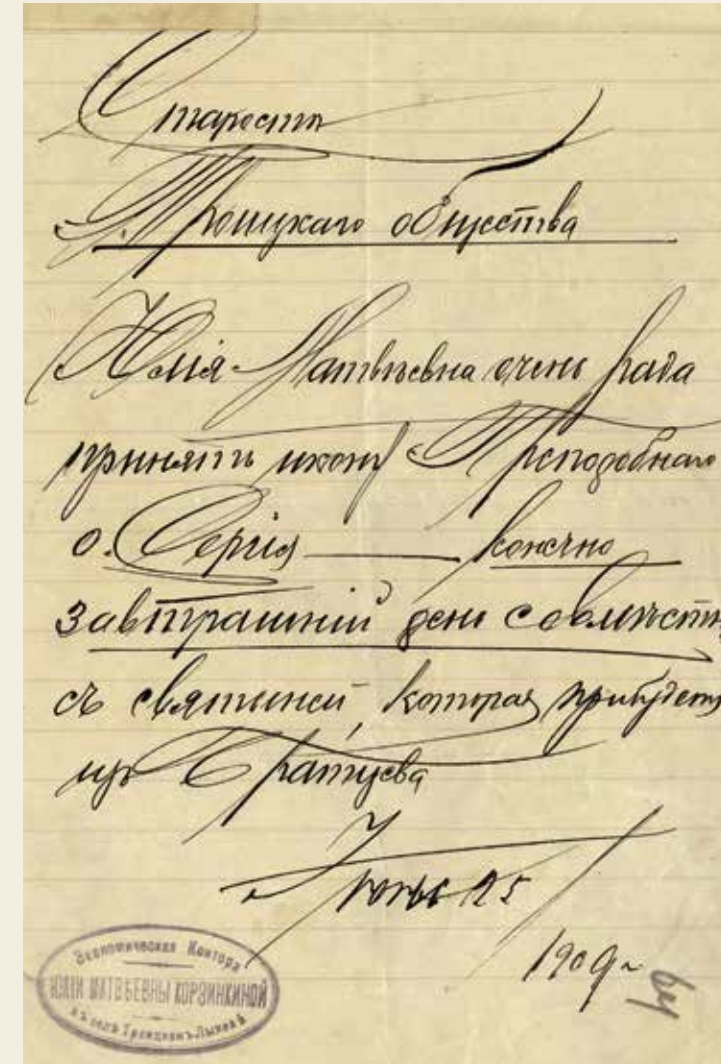 Старостѣ
Троицкаго общества
Юлія Матвѣевна очень рада
принять икону Преподобнаго
о. Сергія — конечно
завтрашній день совмѣстно
съ святыней, которая прибудетъ
изъ Братцева
25
1909 г.
Экономическая Контора
ЮЛІИ МАТВѢЕВНЫ КОРЗИНКИНОЙ
въ селѣ Троицкомъ-Лыковѣ